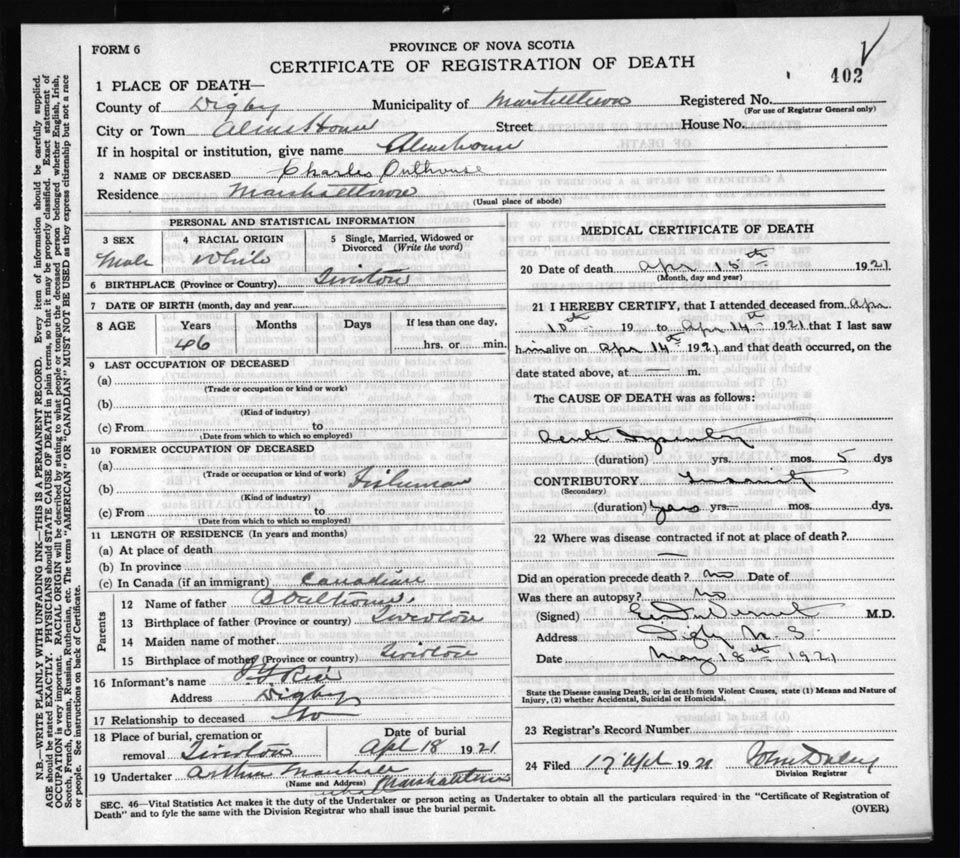 FORM 6
PROVINCE OF NOVA SCOTIA
CERTIFICATE OF REGISTRATION OF DEATH
402
1 PLACE OF DEATH—
County of Digby Municipality of Marshalltown Registered No.
(For use of Registrar General only)
City or Town Alms House Street House No.
If in hospital or institution, give name Almshouse
2 NAME OF DECEASED Charles Outhouse
Residence Marshalltown
(Usual place of abode)
PERSONAL AND STATISTICAL INFORMATION
3 SEX 4 RACIAL ORIGIN 5 Single, Married, Widowed or Divorced (Write the word)
Male White
6 BIRTHPLACE (Province or Country) Tiverton
7 DATE OF BIRTH (month, day and year)
8 AGE Years Months Days If less than one day,
46 hrs. or min.
9 LAST OCCUPATION OF DECEASED
(a)
(Trade or occupation or kind or work)
(b)
(Kind of industry)
(c) From to
(Date from which to which so employed)
10 FORMER OCCUPATION OF DECEASED
(a)
(Trade or occupation or kind of work)
(b) Fisherman
(Kind of industry)
(c) From to
(Date from which to which so employed)
11 LENGTH OF RESIDENCE (In years and months)
(a) At place of death
(b) In province
(c) In Canada (if an immigrant) Canadian
Parents
12 Name of father B Outhouse
13 Birthplace of father (Province or country) Tiverton
14 Maiden name of mother
15 Birthplace of mother (Province or country) Tiverton
16 Informant's name Rice
Address Digby
17 Relationship to deceased No
18 Place of burial, cremation or removal Tiverton
Date of burial
Apl 18 1921
19 Undertaker Arthur Marshall
(Name and Address) Marshalltown
MEDICAL CERTIFICATE OF DEATH
20 Date of death Apr 15th 1921
(Month, day and year)
21 I HEREBY CERTIFY, that I attended deceased from Apr
10th 19 to Apr 14th 1921 that I last saw
him alive on Apr 14th 1921 and that death occurred, on the
date stated above, at — m.
The CAUSE OF DEATH was as follows:
Acute Dysentery
(duration) yrs. mos. 5 dys
CONTRIBUTORY Insanity
(Secondary)
(duration) years yrs. mos. dys.
22 Where was disease contracted if not at place of death?
—
Did an operation precede death? No Date of
Was there an autopsy? No
(Signed) M.D.
Address Digby N.S.
Date May 18th 1921
State the Disease causing Death, or in death from Violent Causes, state (1) Means and Nature of
Injury, (2) whether Accidental, Suicidal or Homicidal.
23 Registrar's Record Number
24 Filed 17 Apl 1921 John Daley
Division Registrar
SEC. 46—Vital Statistics Act makes it the duty of the Undertaker or person acting as Undertaker to obtain all the particulars required in the "Certificate of Registration of
Death" and to fyle the same with the Division Registrar who shall issue the burial permit. (OVER)
N.B.—WRITE PLAINLY WITH UNFADING INK—THIS IS A PERMANENT RECORD. Every item of information should be carefully supplied.
AGE should be stated EXACTLY. PHYSICIANS should STATE CAUSE OF DEATH in plain terms, so that it may be properly classified. Exact statement of
OCCUPATION is very important. RACIAL ORIGIN will be described by stating to what people or tongue the deceased person belonged whether English, Irish,
Scotch, French, German, Russian, Ruthenian, etc. The terms "AMERICAN" OR "CANADIAN" MUST NOT BE USED as they express citizenship but not a race
or people. See instructions on back of Certificate.